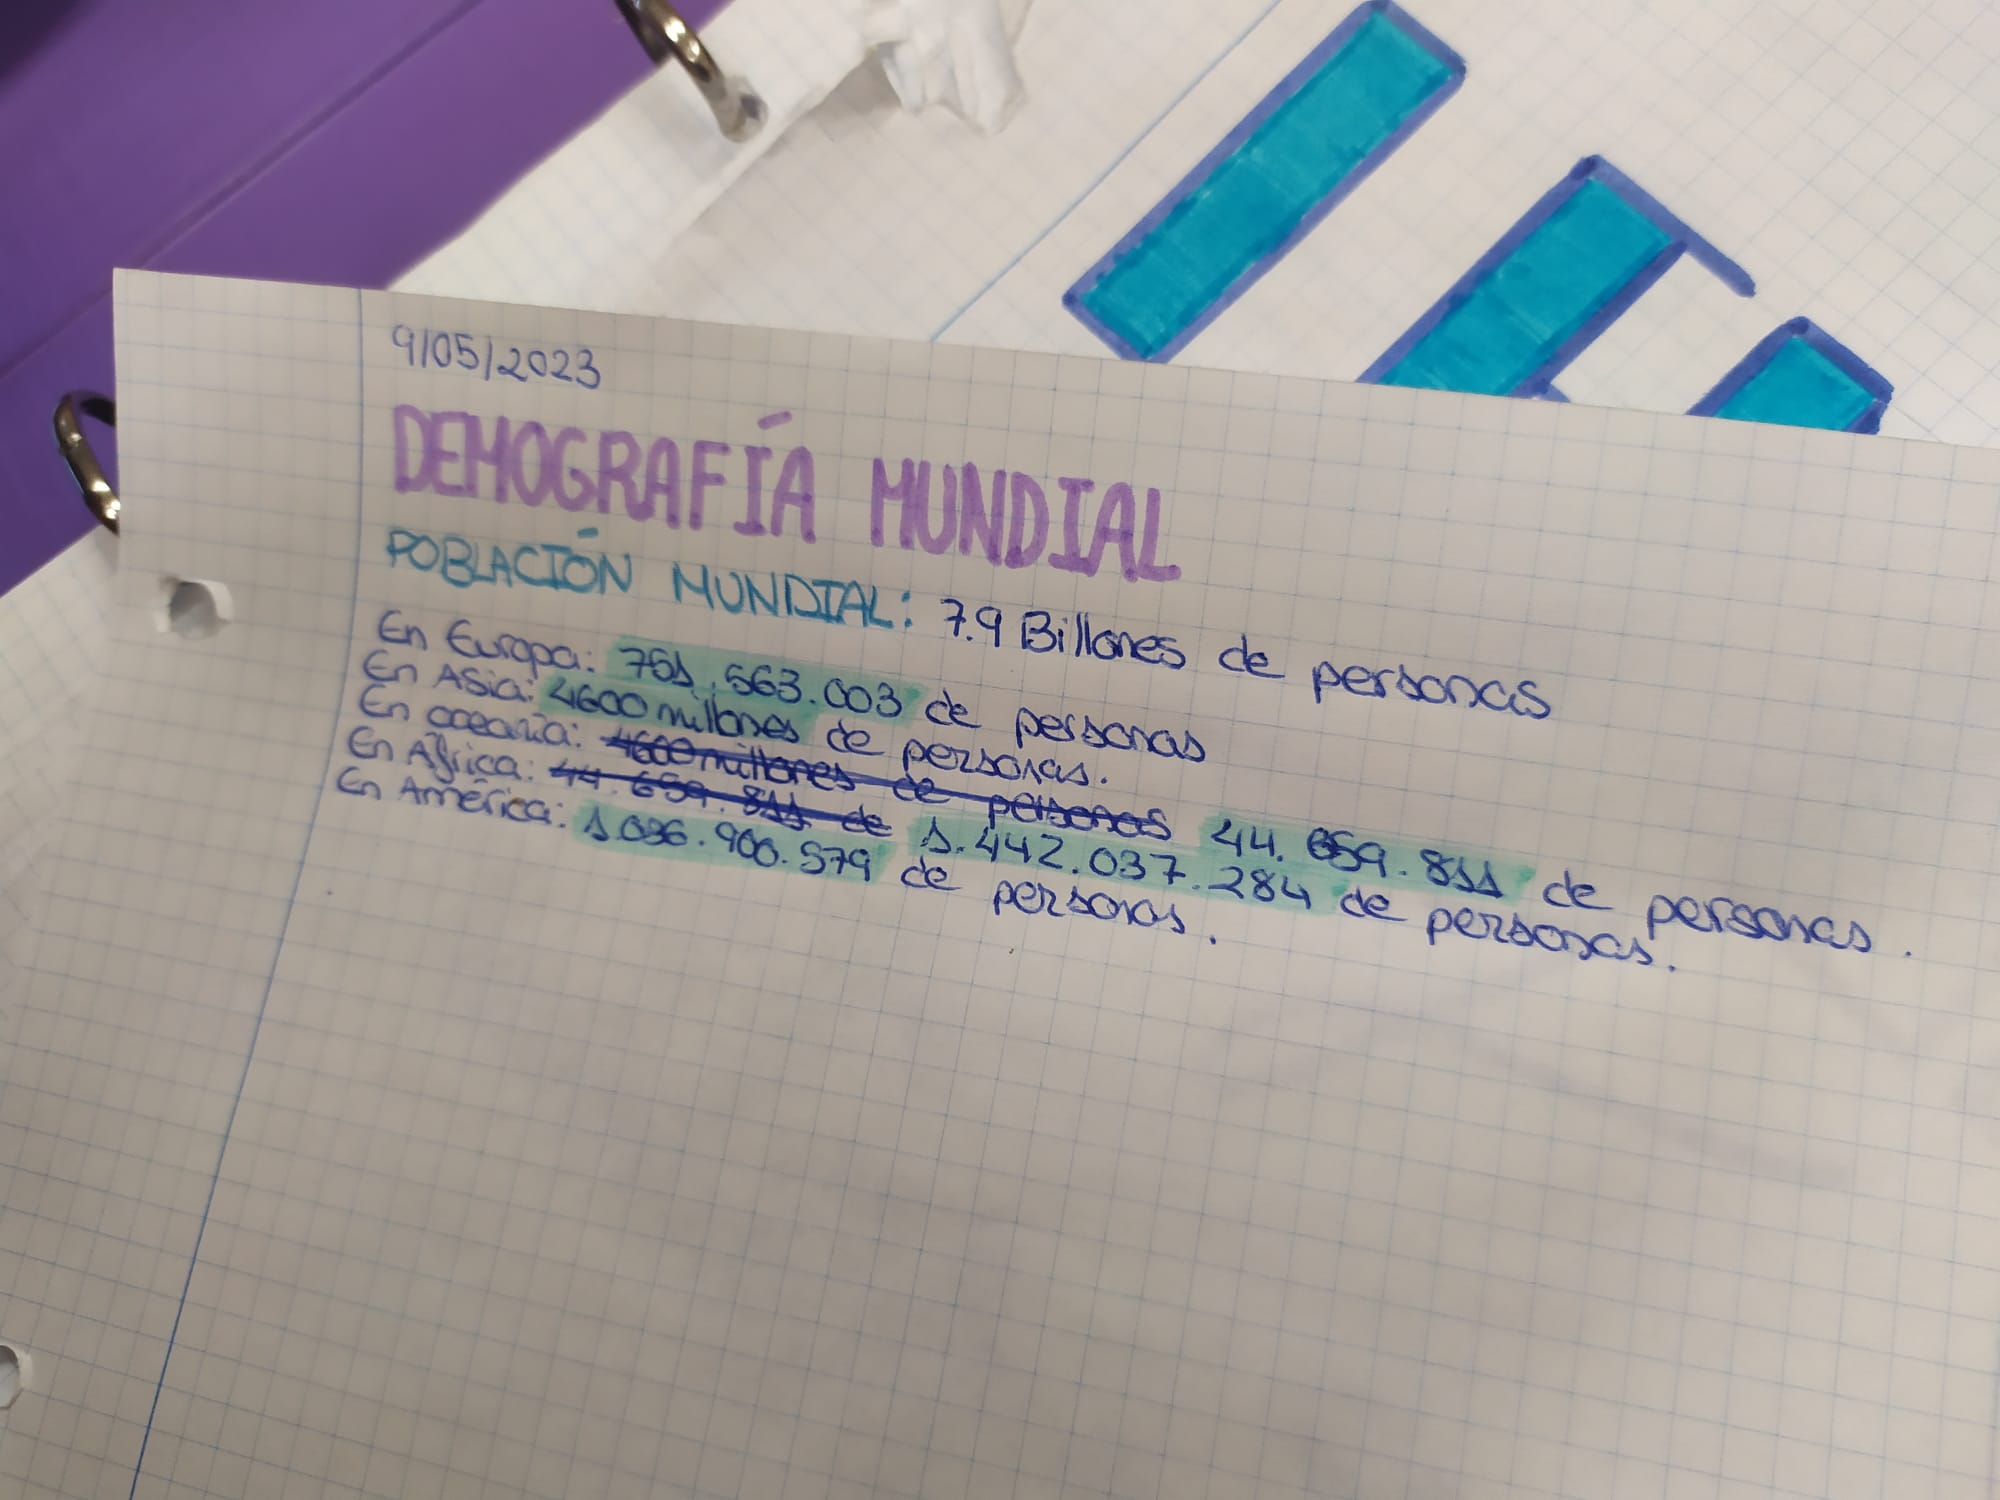 9/05/2023
DEMOGRAFÍA MUNDIAL
POBLACIÓN MUNDIAL: 7.9 Billones de personas
En Europa: 751.563.003 de personas
En Asia: 4600 millones de personas.
En oceanía: 4600 millones de personas 44.659.811 de personas.
En África: 44.659.811 de 1.442.037.284 de personas.
En América: 1.036.900.579 de personas.